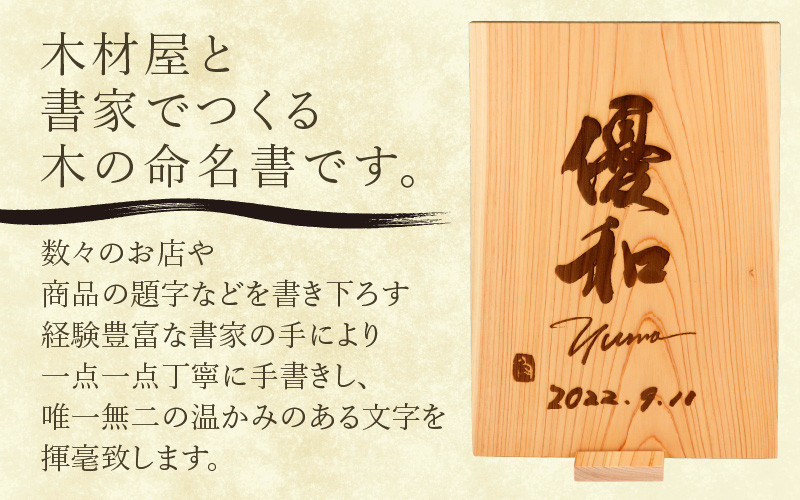 木材屋と
書家でつくる
木の命名書です。
数々のお店や
商品の題字などを書き下ろす
経験豊富な書家の手により
一点一点丁寧に手書きし、
唯一無二の温かみのある文字を
揮毫致します。
優和
Yuma
2022.9.11